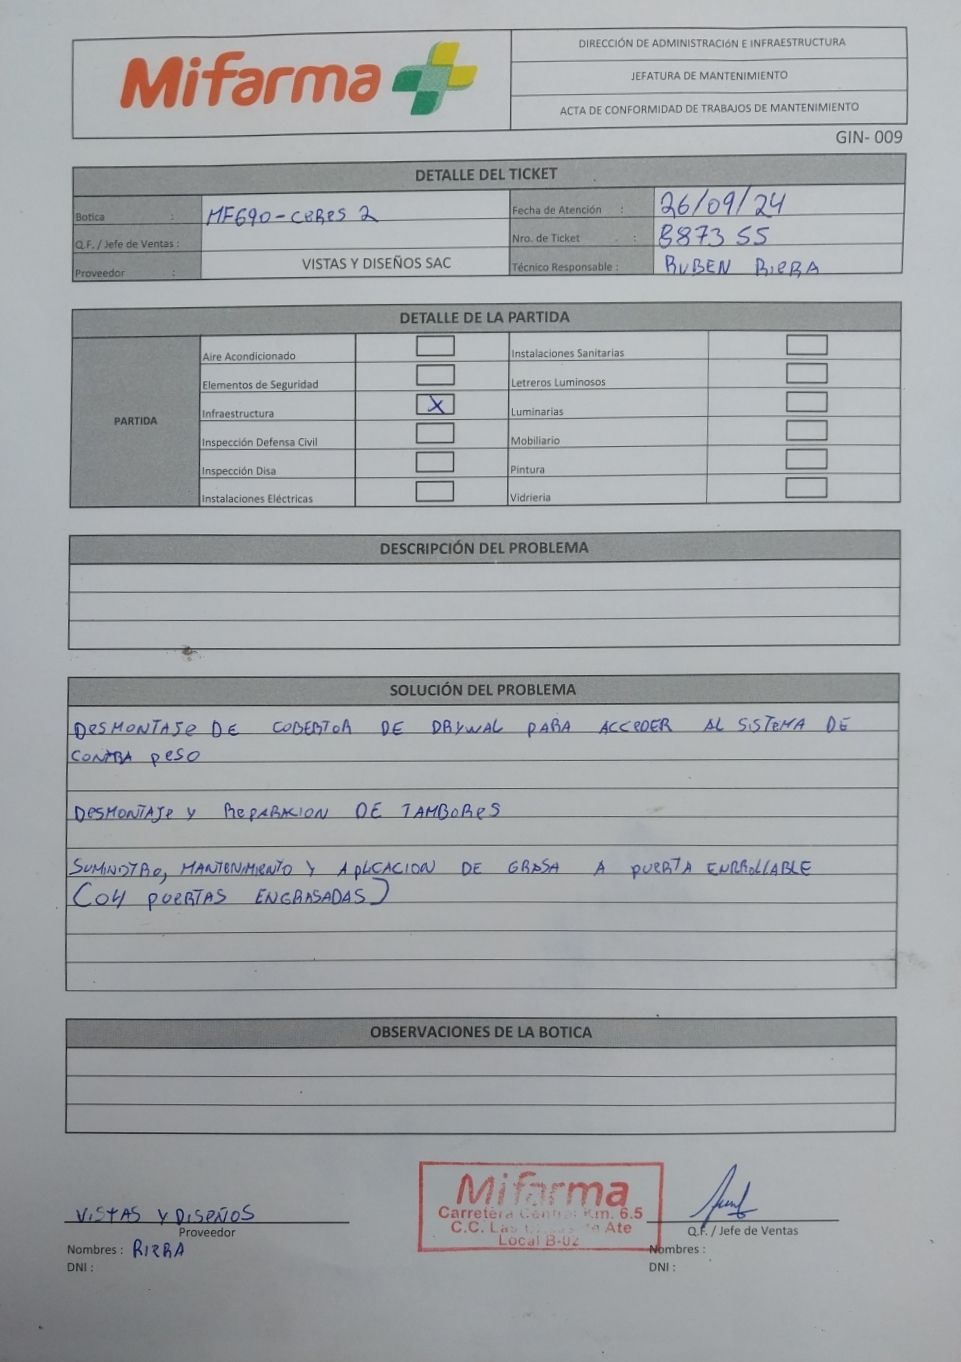 Mifarma
DIRECCIÓN DE ADMINISTRACIóN E INFRAESTRUCTURA
JEFATURA DE MANTENIMIENTO
ACTA DE CONFORMIDAD DE TRABAJOS DE MANTENIMIENTO
GIN- 009
DETALLE DEL TICKET
Botica : MF690-CERES 2 Fecha de Atención : 26/09/24
Q.F. / Jefe de Ventas : Nro. de Ticket : 887355
Proveedor : VISTAS Y DISEÑOS SAC Técnico Responsable : RUBEN RIERA
DETALLE DE LA PARTIDA
PARTIDA
Aire Acondicionado Instalaciones Sanitarias
Elementos de Seguridad Letreros Luminosos
Infraestructura X Luminarias
Inspección Defensa Civil Mobiliario
Inspección Disa Pintura
Instalaciones Eléctricas Vidrieria
DESCRIPCIÓN DEL PROBLEMA
SOLUCIÓN DEL PROBLEMA
DESMONTAJE DE COBERTOR DE DRYWAL PARA ACCEDER AL SISTEMA DE
CONTRA PESO
DESMONTAJE Y REPARACION DE TAMBORES
SUMINISTRO, MANTENIMIENTO Y APLCACION DE GRASA A PUERTA ENRROLLABLE
(04 PUERTAS ENGRASADAS)
OBSERVACIONES DE LA BOTICA
Mifarma
Carretera Central Km. 6.5
C.C. Las de Ate
Local B-02
VISTAS Y DISEÑOS
Proveedor Q.F. / Jefe de Ventas
Nombres : RIERA Nombres :
DNI : DNI :